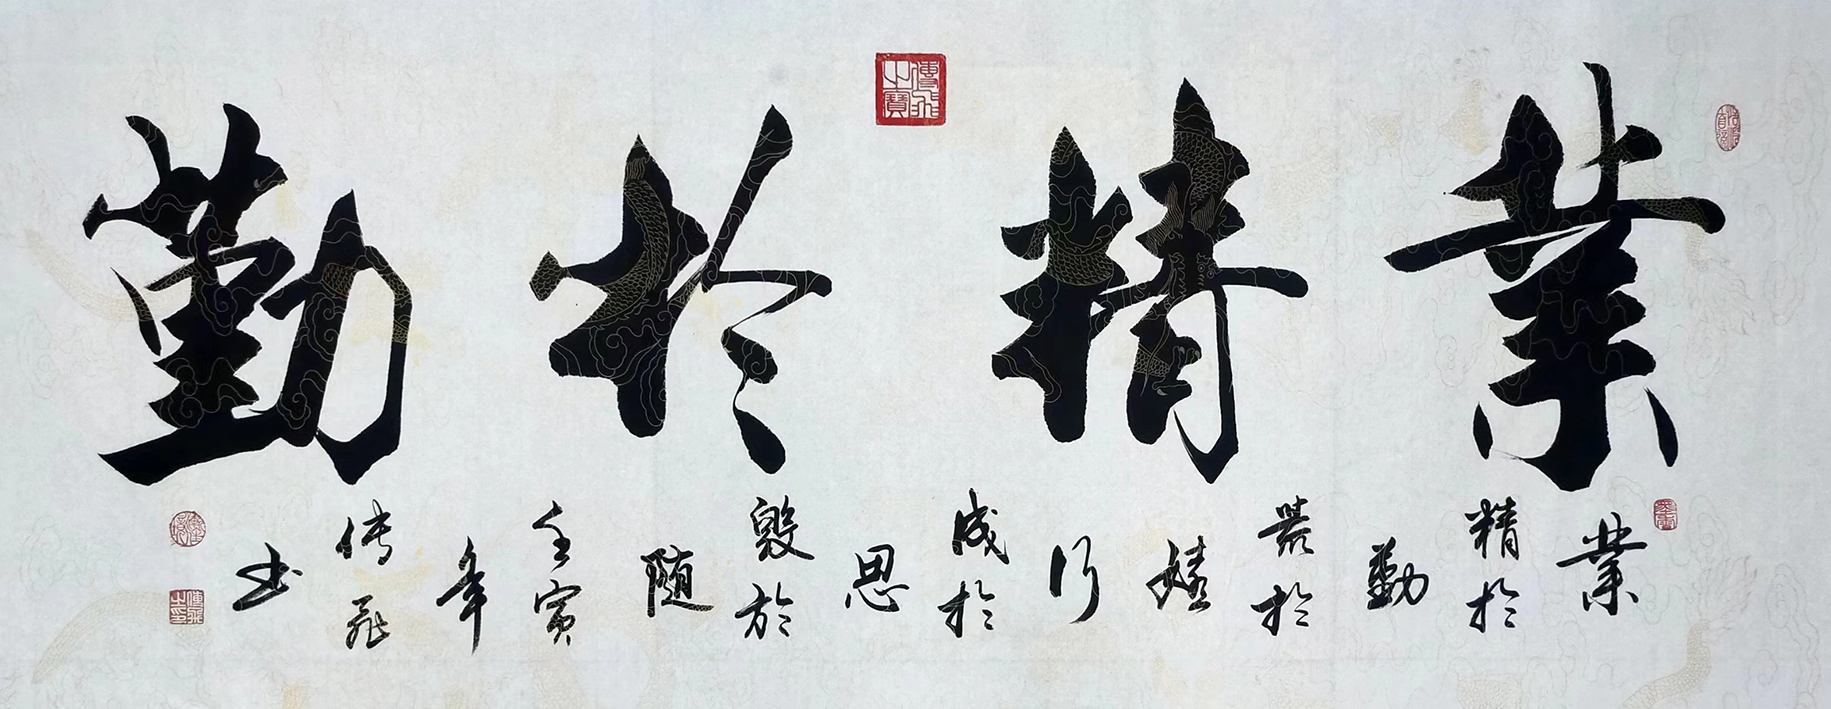 業精於勤
業
精於
勤
荒於
嬉
行
成於
思
毀於
随
壬寅
年
传飛
书